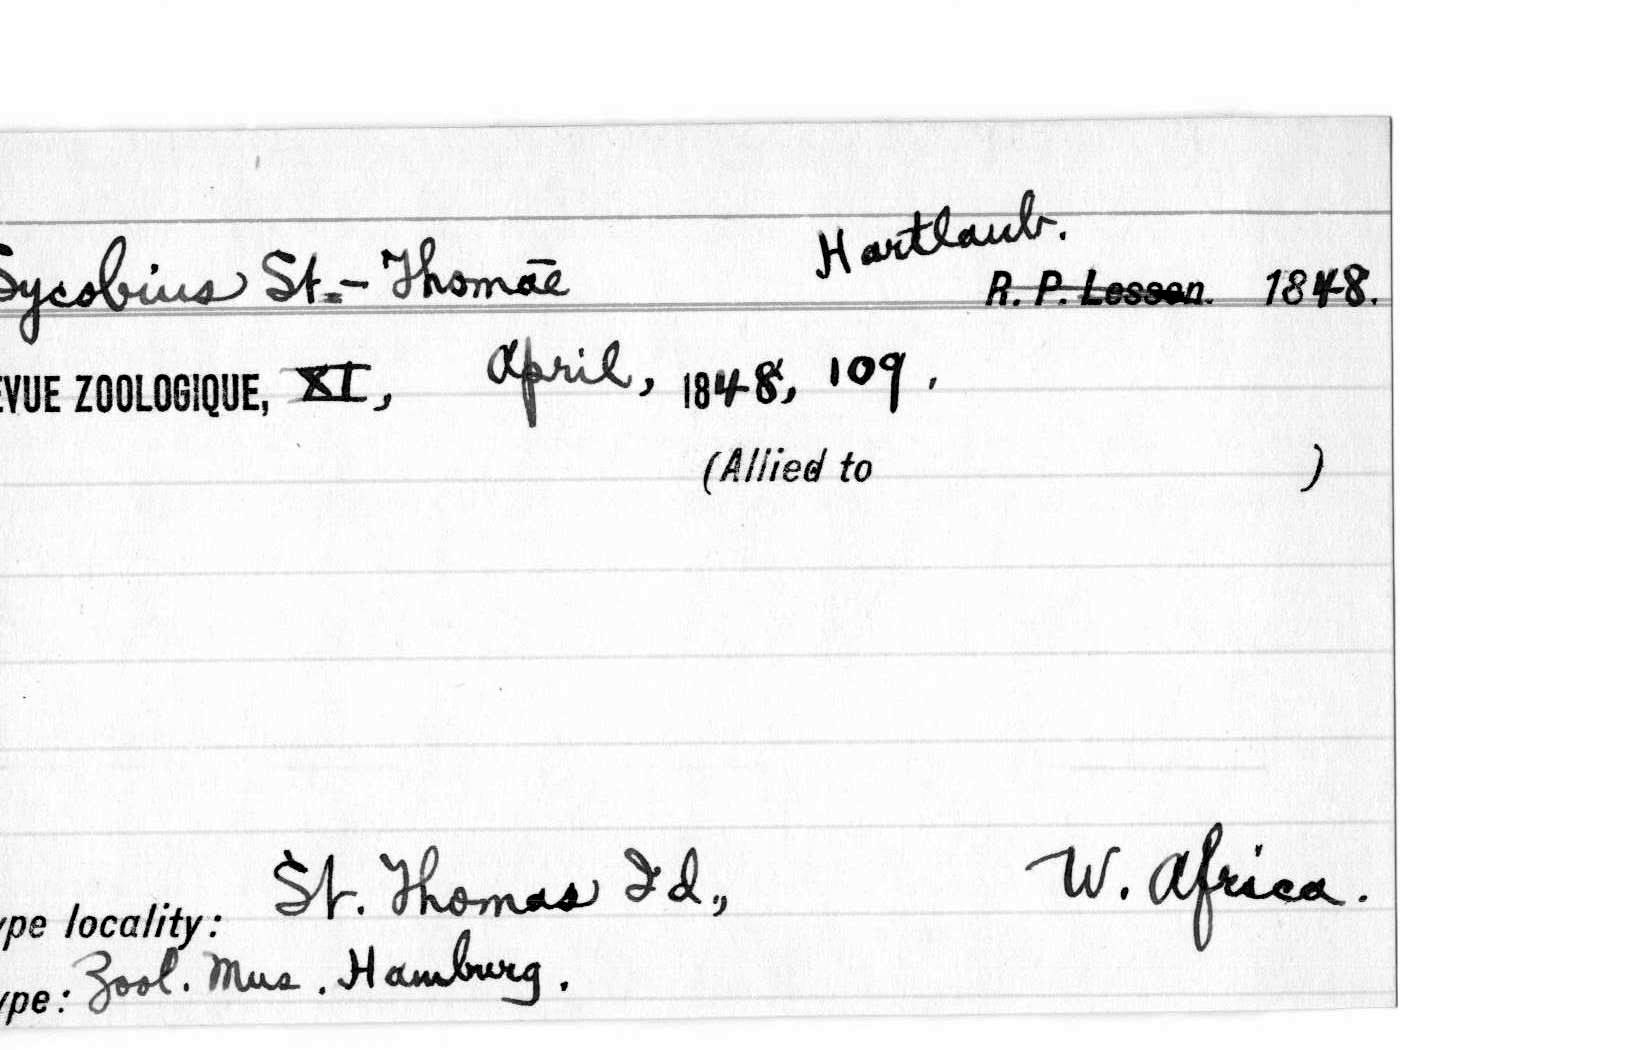 Sycobius St.-Thomae Hartlaub.
R. P. Lesson. 1848.
EVUE ZOOLOGIQUE, XI, April, 1848, 109.
(Allied to )
ype locality: St. Thomas Id., W. Africa.
ype: Zool. Mus. Hamburg.